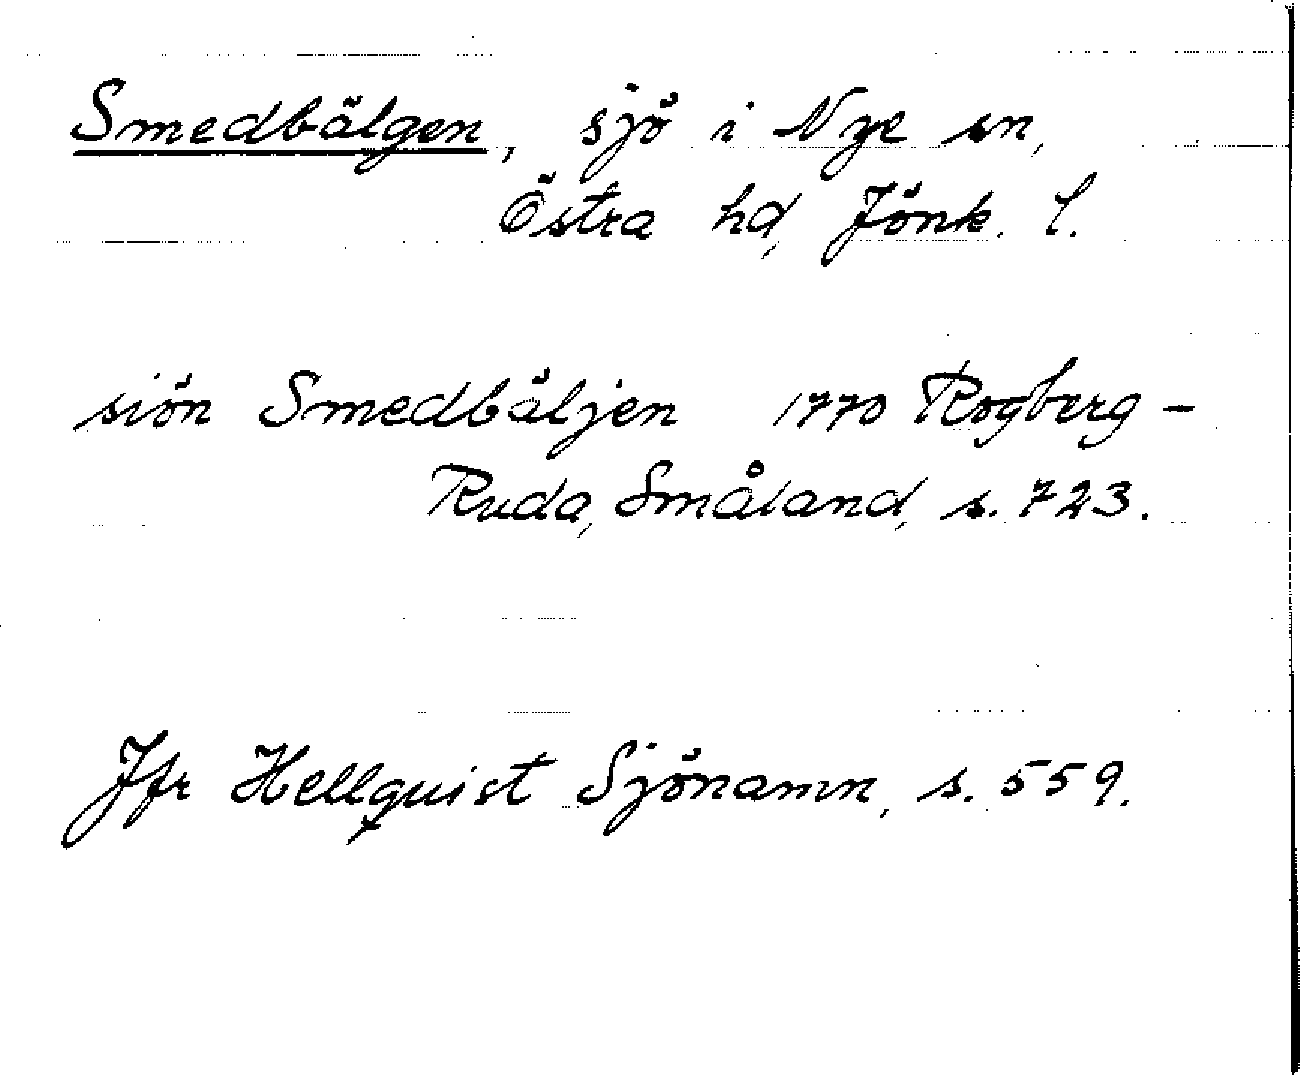 Smedbälgen, sjö i Nye sn,
Östra hd, Jönk. l.
siön Smedbäljen 1770 Rogberg-
Ruda, Småland, s. 723.
Jfr Hellquist Sjönamn, s. 559.